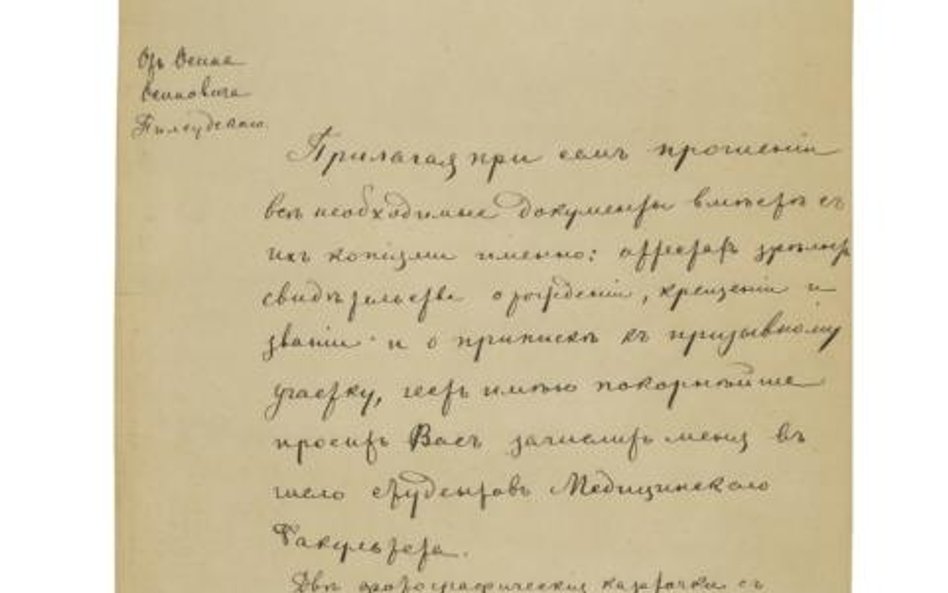 Отъ Осипа
Осиповича
Пилсудскаго.
Прилагая при семъ прошеніи
всѣ необходимые документы вмѣстѣ съ
ихъ копіями именно: аттестатъ зрѣлости
свидѣтельства о рожденіи, крещеніи и
званіи и о припискѣ къ призывному
участку, честь имѣю покорнѣйше
просить Васъ зачислить меня въ
число студентовъ Медицинскаго
Факультета.
Двѣ фотографическія карточки съ